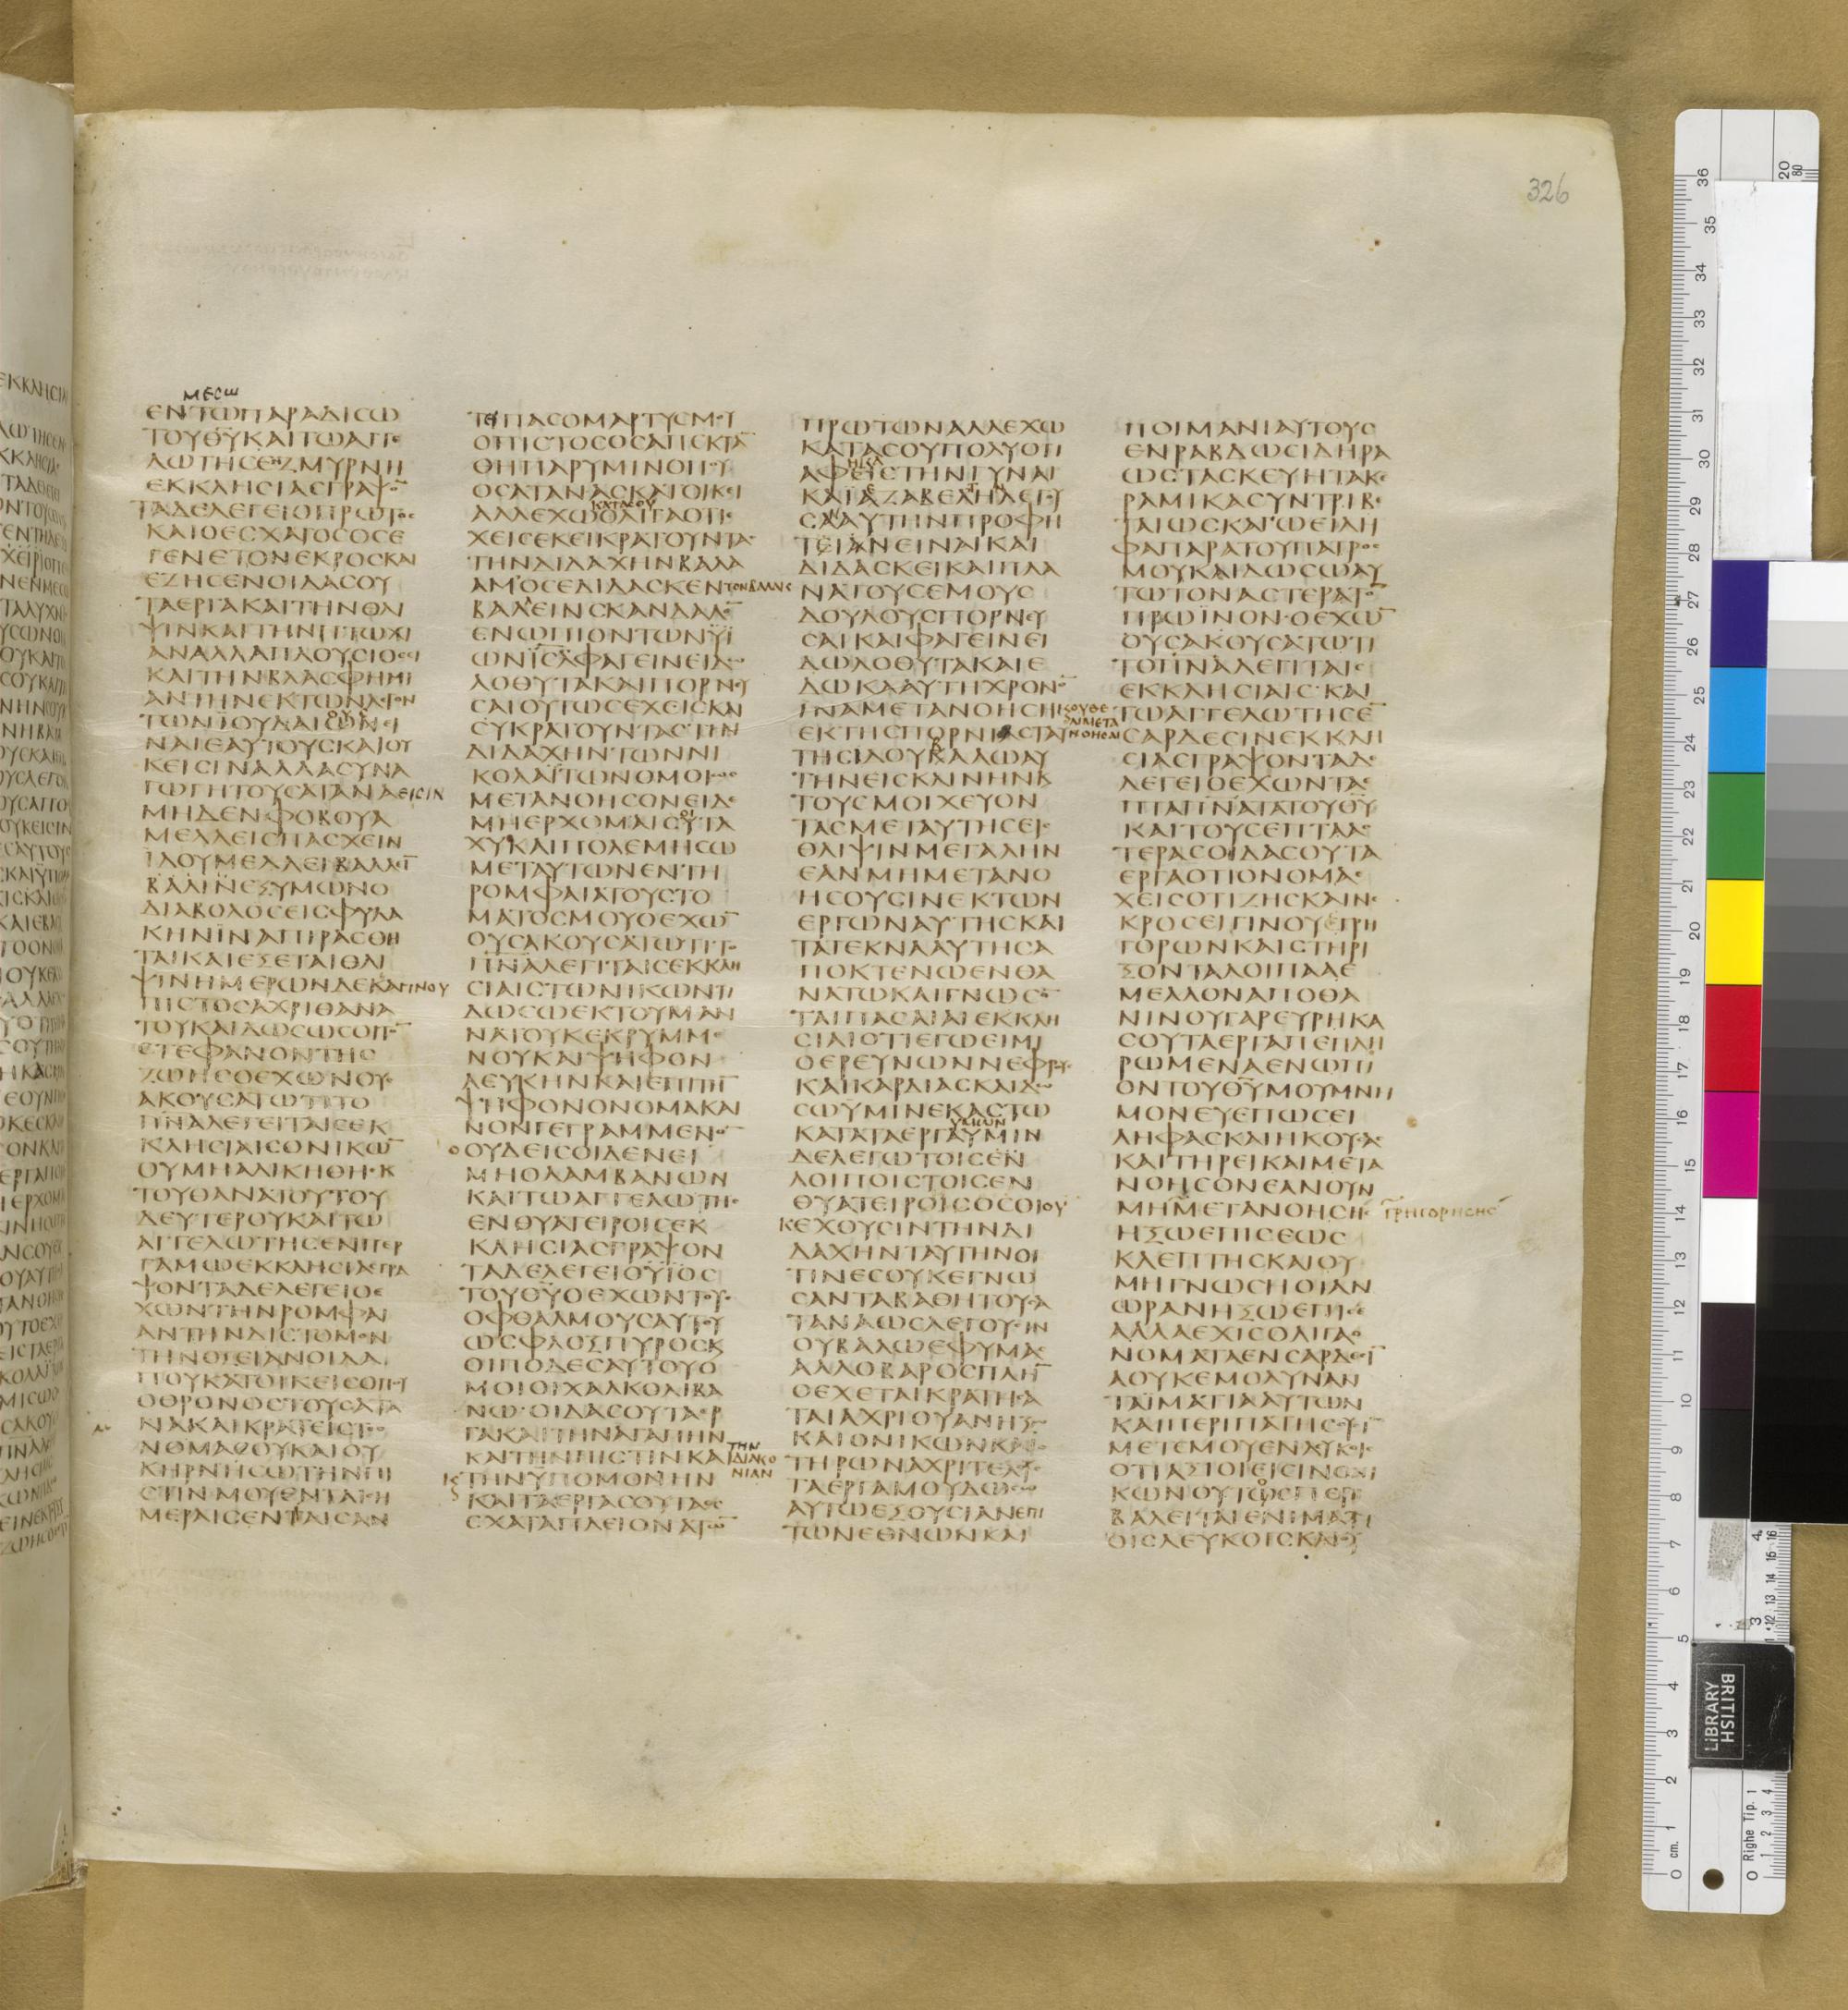 326
ΜΕϹΩ
ΕΝΤΩΠΑΡΑΔΙϹΩ
ΤΟΥΘΥΚΑΙΤΩΑΓΓΕ
ΛΩΤΗϹΕΝΖΜΥΡΝΗ
ΕΚΚΛΗϹΙΑϹΓΡΑΨΟ̅
ΤΑΔΕΛΕΓΕΙΟΠΡΩΤΟϹ
ΚΑΙΟΕϹΧΑΤΟϹΟϹΕ
ΓΕΝΕΤΟΝΕΚΡΟϹΚΑΙ
ΕΖΗϹΕΝΟΙΔΑϹΟΥ
ΤΑΕΡΓΑΚΑΙΤΗΝΘΛΙ
ΨΙΝΚΑΙΤΗΝΠΤΩΧΙ
ΑΝΑΛΛΑΠΛΟΥϹΙΟϹΕΙ
ΚΑΙΤΗΝΒΛΑϹΦΗΜΙ
ΑΝΤΗΝΕΚΤΩΝΛΕΓΟΝ
ΤΩΝΙΟΥΔΑΙΩΝΕΙ
ΝΑΙΕΑΥΤΟΥϹΚΑΙΟΥ
ΚΕΙϹΙΝΑΛΛΑϹΥΝΑ
ΓΩΓΗΤΟΥϹΑΤΑΝΑΕΙϹΙΝ
ΜΗΔΕΝΦΟΒΟΥΑ
ΜΕΛΛΕΙϹΠΑϹΧΕΙΝ
ΙΔΟΥΜΕΛΛΕΙΒΑΛΛΕΙ̅
ΒΑΛΙΝΕΞΥΜΩΝΟ
ΔΙΑΒΟΛΟϹΕΙϹΦΥΛΑ
ΚΗΝΙΝΑΠΙΡΑϹΘΗ
ΤΑΙΚΑΙΕΞΕΤΑΙΘΛΙ
ΨΙΝΗΜΕΡΩΝΔΕΚΑΓΙΝΟΥ
ΠΙϹΤΟϹΑΧΡΙΘΑΝΑ
ΤΟΥΚΑΙΔΩϹΩϹΟΙΤΟ̅
ϹΤΕΦΑΝΟΝΤΗϹ
ΖΩΗϹΟΕΧΩΝΟΥϹ
ΑΚΟΥϹΑΤΩΤΙΤΟ
ΠΝΑΛΕΓΕΙΤΑΙϹΕΚ
ΚΛΗϹΙΑΙϹΟΝΙΚΩ̅
ΟΥΜΗΑΔΙΚΗΘΗΕΚ
ΤΟΥΘΑΝΑΤΟΥΤΟΥ
ΔΕΥΤΕΡΟΥΚΑΙΤΩ
ΑΓΓΕΛΩΤΗϹΕΝΠΕΡ
ΓΑΜΩΕΚΚΛΗϹΙΑϹΓΡΑ
ΨΟΝΤΑΔΕΛΕΓΕΙΟΕ
ΧΩΝΤΗΝΡΟΜΦΑΙ
ΑΝΤΗΝΔΙϹΤΟΜΟΝ
ΤΗΝΟΞΕΙΑΝΟΙΔΑ
ΠΟΥΚΑΤΟΙΚΕΙϹΟΠΟΥ
ΟΘΡΟΝΟϹΤΟΥϹΑΤΑ
ΝΑΚΑΙΚΡΑΤΕΙϹΤΟ
ΝΟΜΑΜΟΥΚΑΙΟΥ
ΚΗΡΝΗϹΩΤΗΝΠΙ
ϹΤΙΝΜΟΥΕΝΤΑΙϹΗ
ΜΕΡΑΙϹΕΝΤΑΙϹΑΝ
ΤΕΙΠΑϹΟΜΑΡΤΥϹΜΟΥ
ΟΠΙϹΤΟϹΟϹΑΠΕΚΤΑ̅
ΘΗΠΑΡΥΜΙΝΟΠΟΥ
ΟϹΑΤΑΝΑϹΚΑΤΟΙΚΕΙ
ΚΑΤΑϹΟΥ
ΑΛΛΕΧΩΟΛΙΓΑΟΤΙΕ
ΧΕΙϹΕΚΕΙΚΡΑΤΟΥΝΤΑϹ
ΤΗΝΔΙΔΑΧΗΝΒΑΛΑ
ΑΜΟϹΕΔΙΔΑϹΚΕΝΤΟΝΒΑΛΑΚ
ΒΑΛΕΙΝϹΚΑΝΔΑΛΟ̅
ΕΝΩΠΙΟΝΤΩΝΥΙ
ΩΝΙϹΛΦΑΓΕΙΝΕΙΔΩ
ΛΟΘΥΤΑΚΑΙΠΟΡΝΕΥ
ϹΑΙΟΥΤΩϹΕΧΕΙϹΚΑΙ
ϹΥΚΡΑΤΟΥΝΤΑϹΤΗΝ
ΔΙΔΑΧΗΝΤΩΝΝΙ
ΚΟΛΑΪΤΩΝΟΜΟΙΩϹ
ΜΕΤΑΝΟΗϹΟΝΕΙΔΕ
ΜΗΕΡΧΟΜΑΙϹΟΙΤΑ
ΧΥΚΑΙΠΟΛΕΜΗϹΩ
ΜΕΤΑΥΤΩΝΕΝΤΗ
ΡΟΜΦΑΙΑΤΟΥϹΤΟ
ΜΑΤΟϹΜΟΥΟΕΧΩ̅
ΟΥϹΑΚΟΥϹΑΤΩΤΙΤΟ
ΠΝΑΛΕΓΙΤΑΙϹΕΚΚΛΗ
ϹΙΑΙϹΤΩΝΙΚΩΝΤΙ
ΔΩϹΩΕΚΤΟΥΜΑΝ
ΝΑΤΟΥΚΕΚΡΥΜΜΕ
ΝΟΥΚΑΙΨΗΦΟΝ
ΛΕΥΚΗΝΚΑΙΕΠΙΤΗ̅
ΨΗΦΟΝΟΝΟΜΑΚΑΙ
ΝΟΝΓΕΓΡΑΜΜΕΝΟ̅
ΟΟΥΔΕΙϹΟΙΔΕΝΕΙ
ΜΗΟΛΑΜΒΑΝΩΝ
ΚΑΙΤΩΑΓΓΕΛΩΤΗϹ
ΕΝΘΥΑΤΕΙΡΟΙϹΕΚ
ΚΛΗϹΙΑϹΓΡΑΨΟΝ
ΤΑΔΕΛΕΓΕΙΟΥΙΟϹ
ΤΟΥΘΥΟΕΧΩΝΤΟΥϹ
ΟΦΘΑΛΜΟΥϹΑΥΤΟΥ
ΩϹΦΛΟΞΠΥΡΟϹΚ
ΟΙΠΟΔΕϹΑΥΤΟΥΟ
ΜΟΙΟΙΧΑΛΚΟΛΙΒΑ
ΝΩΟΙΔΑϹΟΥΤΑΕΡ
ΓΑΚΑΙΤΗΝΑΓΑΠΗΝ
ΚΑΙΤΗΝΠΙϹΤΙΝΚΑΙΤΗΝ
ΔΙΑΚΟ
ΝΙΑΝ
ΚϚΤΗΝΥΠΟΜΟΝΗΝ
ΚΑΙΤΑΕΡΓΑϹΟΥΤΑΕ
ϹΧΑΤΑΠΛΕΙΟΝΑΤΩ̅
ΠΡΩΤΩΝΑΛΛΕΧΩ
ΚΑΤΑϹΟΥΠΟΛΥΟΤΙ
ΑΦΕΙϹΤΗΝΓΥΝΑΙ
ΚΑΙΑΖΑΒΕΛΗΛΕΓΟΥ
ϹΑΑΥΤΗΝΠΡΟΦΗ
ΤΕΙΑΝΕΙΝΑΙΚΑΙ
ΔΙΔΑϹΚΕΙΚΑΙΠΛΑ
ΝΑΤΟΥϹΕΜΟΥϹ
ΔΟΥΛΟΥϹΠΟΡΝΕΥ
ϹΑΙΚΑΙΦΑΓΕΙΝΕΙ
ΔΩΛΟΘΥΤΑΚΑΙΕ
ΔΩΚΑΑΥΤΗΧΡΟΝΟ̅
ΙΝΑΜΕΤΑΝΟΗϹΗΚΟΥΘΕ
ΛΙΜΕΤΑ
ΝΟΗϹΑΙ
ΕΚΤΗϹΠΟΡΝΙΑϹΤΑΥ
ΤΗϹΙΔΟΥΒΑΛΩΑΥ
ΤΗΝΕΙϹΚΛΙΝΗΝΚ
ΤΟΥϹΜΟΙΧΕΥΟΝ
ΤΑϹΜΕΤΑΥΤΗϹΕΙϹ
ΘΛΙΨΙΝΜΕΓΑΛΗΝ
ΕΑΝΜΗΜΕΤΑΝΟ
ΗϹΟΥϹΙΝΕΚΤΩΝ
ΕΡΓΩΝΑΥΤΗϹΚΑΙ
ΤΑΤΕΚΝΑΑΥΤΗϹΑ
ΠΟΚΤΕΝΩΕΝΘΑ
ΝΑΤΩΚΑΙΓΝΩϹΟ̅
ΤΑΙΠΑϹΑΙΑΙΕΚΚΛΗ
ϹΙΑΙΟΤΙΕΓΩΕΙΜΙ
ΟΕΡΕΥΝΩΝΝΕΦΡΟΥϹ
ΚΑΙΚΑΡΔΙΑϹΚΑΙΔΩ
ϹΩΥΜΙΝΕΚΑϹΤΩ
ΚΑΤΑΤΑΕΡΓΑΥΜΩΝΥΜΙΝ
ΔΕΛΕΓΩΤΟΙϹΕΝ
ΛΟΙΠΟΙϹΤΟΙϹΕΝ
ΘΥΑΤΕΙΡΟΙϹΟϹΟΙΟΥ
ΚΕΧΟΥϹΙΝΤΗΝΔΙ
ΔΑΧΗΝΤΑΥΤΗΝΟΙ
ΤΙΝΕϹΟΥΚΕΓΝΩ
ϹΑΝΤΑΒΑΘΗΤΟΥϹΑ
ΤΑΝΑΩϹΛΕΓΟΥϹΙΝ
ΟΥΒΑΛΩΕΦΥΜΑϹ
ΑΛΛΟΒΑΡΟϹΠΛΗ̅
ΟΕΧΕΤΑΙΚΡΑΤΗϹΑ
ΤΑΙΑΧΡΙΟΥΑΝΗΞΩ
ΚΑΙΟΝΙΚΩΝΚΑΙΟ
ΤΗΡΩΝΑΧΡΙΤΕΛΟΥϹ
ΤΑΕΡΓΑΜΟΥΔΩϹΩ
ΑΥΤΩΕΞΟΥϹΙΑΝΕΠΙ
ΤΩΝΕΘΝΩΝΚΑΙ
ΠΟΙΜΑΝΙΑΥΤΟΥϹ
ΕΝΡΑΒΔΩϹΙΔΗΡΑ
ΩϹΤΑϹΚΕΥΗΤΑΚΕ
ΡΑΜΙΚΑϹΥΝΤΡΙΒΕ
ΤΑΙΩϹΚΑΓΩΕΙΛΗ
ΦΑΠΑΡΑΤΟΥΠΑΤΡΟϹ
ΜΟΥΚΑΙΔΩϹΩΑΥ
ΤΩΤΟΝΑϹΤΕΡΑΤΟ̅
ΠΡΩΪΝΟΝΟΕΧΩ̅
ΟΥϹΑΚΟΥϹΑΤΩΤΙ
ΤΟΠΝΑΛΕΓΙΤΑΙϹ
ΕΚΚΛΗϹΙΑΙϹΚΑΙ
ΤΩΑΓΓΕΛΩΤΗϹΕ̅
ϹΑΡΔΕϹΙΝΕΚΚΛΗ
ϹΙΑϹΓΡΑΨΟΝΤΑΔΕ
ΛΕΓΕΙΟΕΧΩΝΤΑΕ
ΠΤΑΠΝΑΤΑΤΟΥΘΥ
ΚΑΙΤΟΥϹΕΠΤΑΑϹ
ΤΕΡΑϹΟΙΔΑϹΟΥΤΑ
ΕΡΓΑΟΤΙΟΝΟΜΑΕ
ΧΕΙϹΟΤΙΖΗϹΚΑΙΝΕ
ΚΡΟϹΕΙΓΙΝΟΥΕΓΡΗ
ΓΟΡΩΝΚΑΙϹΤΗΡΙ
ΞΟΝΤΑΛΟΙΠΑΑΕ
ΜΕΛΛΟΝΑΠΟΘΑ
ΝΙΝΟΥΓΑΡΕΥΡΗΚΑ
ϹΟΥΤΑΕΡΓΑΠΕΠΛΗ
ΡΩΜΕΝΑΕΝΩΠΙ
ΟΝΤΟΥΘΥΜΟΥΜΝΗ
ΜΟΝΕΥΕΠΩϹΕΙ
ΛΗΦΑϹΚΑΙΗΚΟΥϹΑϹ
ΚΑΙΤΗΡΕΙΚΑΙΜΕΤΑ
ΝΟΗϹΟΝΕΑΝΟΥΝ
ΜΗΜΕΤΑΝΟΗϹΗϹ ΓΡΗΓΟΡΗϹΗϹ
ΗΞΩΕΠΙϹΕΩϹ
ΚΛΕΠΤΗϹΚΑΙΟΥ
ΜΗΓΝΩϹΗΟΙΑΝ
ΩΡΑΝΗΞΩΕΠΙϹΕ
ΑΛΛΑΕΧΙϹΟΛΙΓΑΟ
ΝΟΜΑΤΑΕΝϹΑΡΔΕϹΙ̅
ΑΟΥΚΕΜΟΛΥΝΑΝ
ΤΑΪΜΑΤΙΑΑΥΤΩΝ
ΚΑΙΠΕΡΙΠΑΤΗϹΟΥϹΙ̅
ΜΕΤΕΜΟΥΕΝΛΥΚΟΙϹ
ΟΤΙΑΞΙΟΙΕΙϹΙΝΟΝΙ
ΚΩΝΟΥΤΩϹΠΕΡΙ
ΒΑΛΕΙΤΑΙΕΝΙΜΑΤΙ
ΟΙϹΛΕΥΚΟΙϹΚΑΙΟΥ
BRITISH
LIBRARY